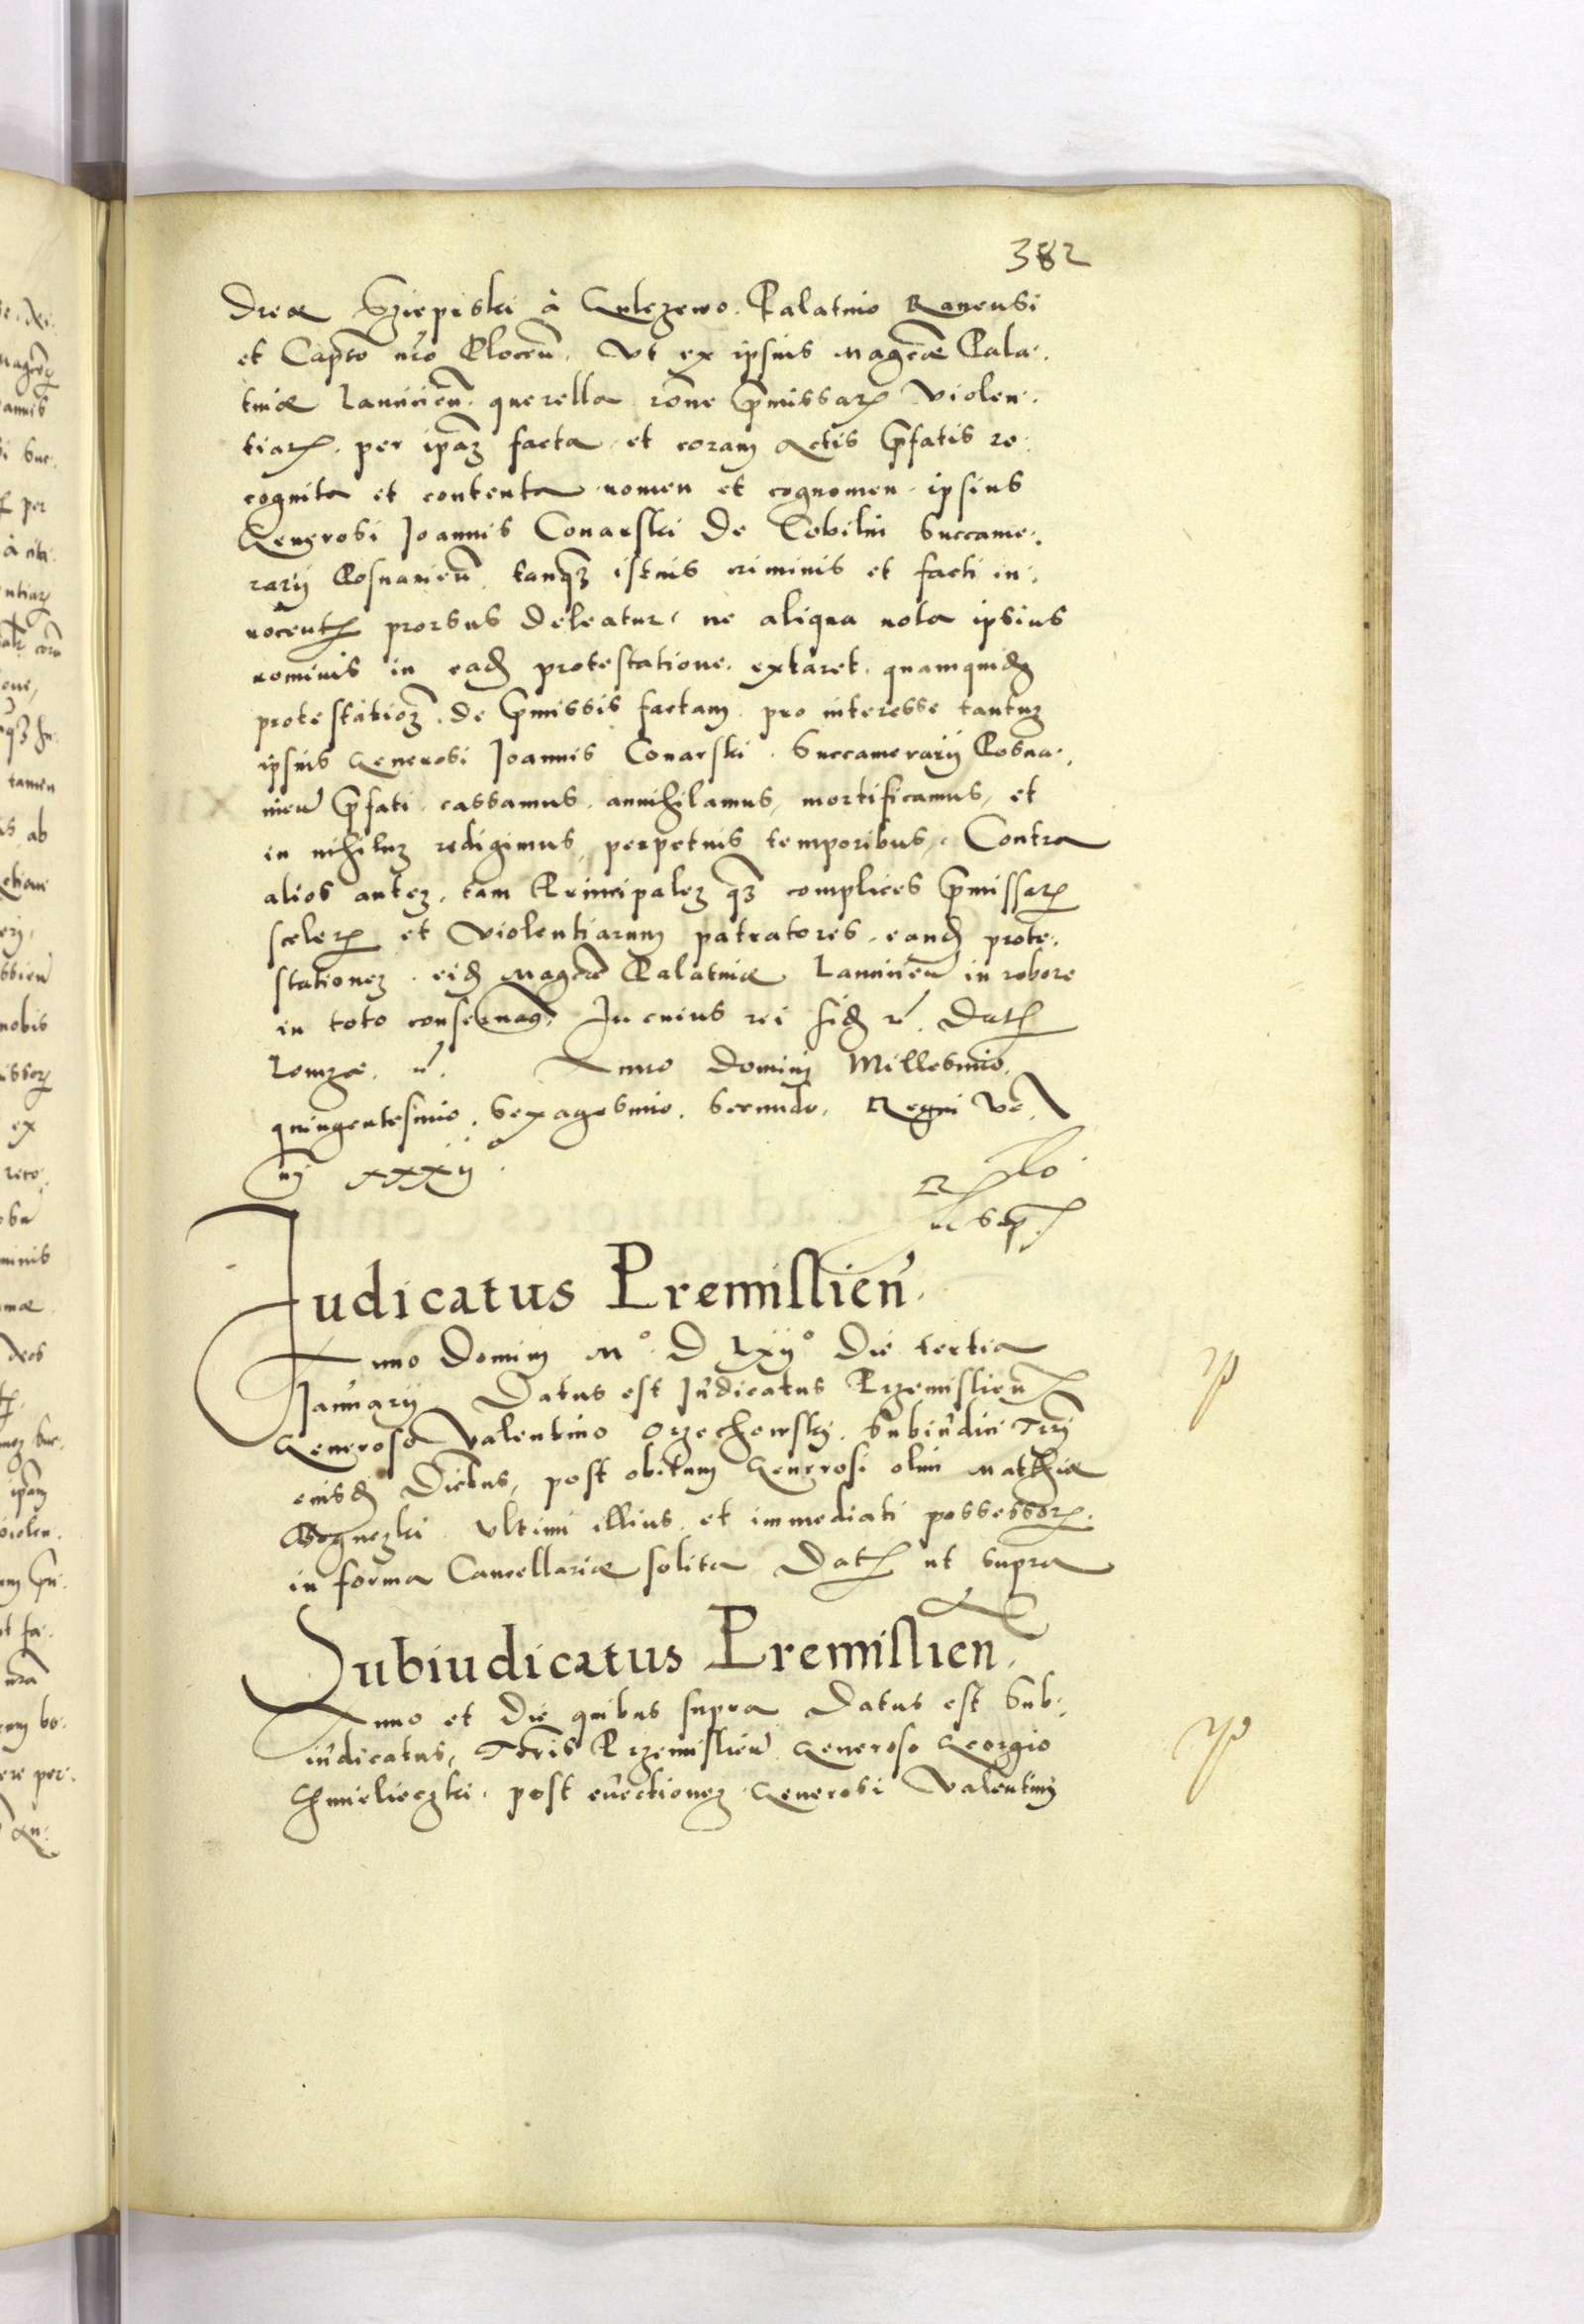 382
dreæ Sziepiski à Gulczewo. Palatino Ranensi
et Capto nro Plocen̄. Vt ex ipsius Magcæ Pala-
tinæ Lanicien̄. querella rōne p̄missarꝝ violen-
tiarꝝ. per ipaꝫ facta et coram Actis p̄fatis re-
cognita et contenta nomen et cognomen ipsius
Generosi Joannis Conarski de Cobilni Succame-
rarij Posnanien̄. tanqꝫ istius criminis et facti in-
nocentꝭ prorsus deleatur, ne aliqua nota ipsius
nominis in eadꝫ protestatione. extaret. quamquidꝫ
protestatioꝫ. de p̄missis factam. pro interesse tantuꝫ
ipsius Generosi Joannis Conarski. Succamerarij Posna-
nien̄ p̄fati. cassamus. annihilamus, mortificamus, et
in nihiluꝫ redigimus, perpetuis temporibus. Contra
alios auteꝫ. tam Principaleꝫ qꝫ complices p̄missarꝝ
scelerꝝ et violentiarum patratores. eandꝫ prote-
stationeꝫ. eidꝫ Magcæ Palatinæ Lanicien̄ in robore
in toto conseruaꝫ. In cuius rei fidꝫ rc̄. Datꝭ
Lomzæ. rc̄. Anno Domini Millesimo.
quingentesimo. Sexagesimo. Secundo. Regni vē.
rj xxxiij
Rlo
ut sup
Judicatus Premislien̄.
Anno Domini M° D LXij° Die tertia
Januarij Datus est Judicatus Przemislien̄
Generoso Valentino Orzechowski. Subiudici Trrj
eiusdꝫ Dictus, post obitum Generosi olim Mathiæ
ultimi illius. et immediati possessorꝭ.
in forma Cancellariæ solita Datꝭ ut supra
Subiudicatus Premislien̄.
Anno et Die quibus supra Datus est Sub-
iudicatus, Trris Przemislien̄ Generoso Georgio
Chmieleczki. post euectioneꝫ Generosi Valentinj